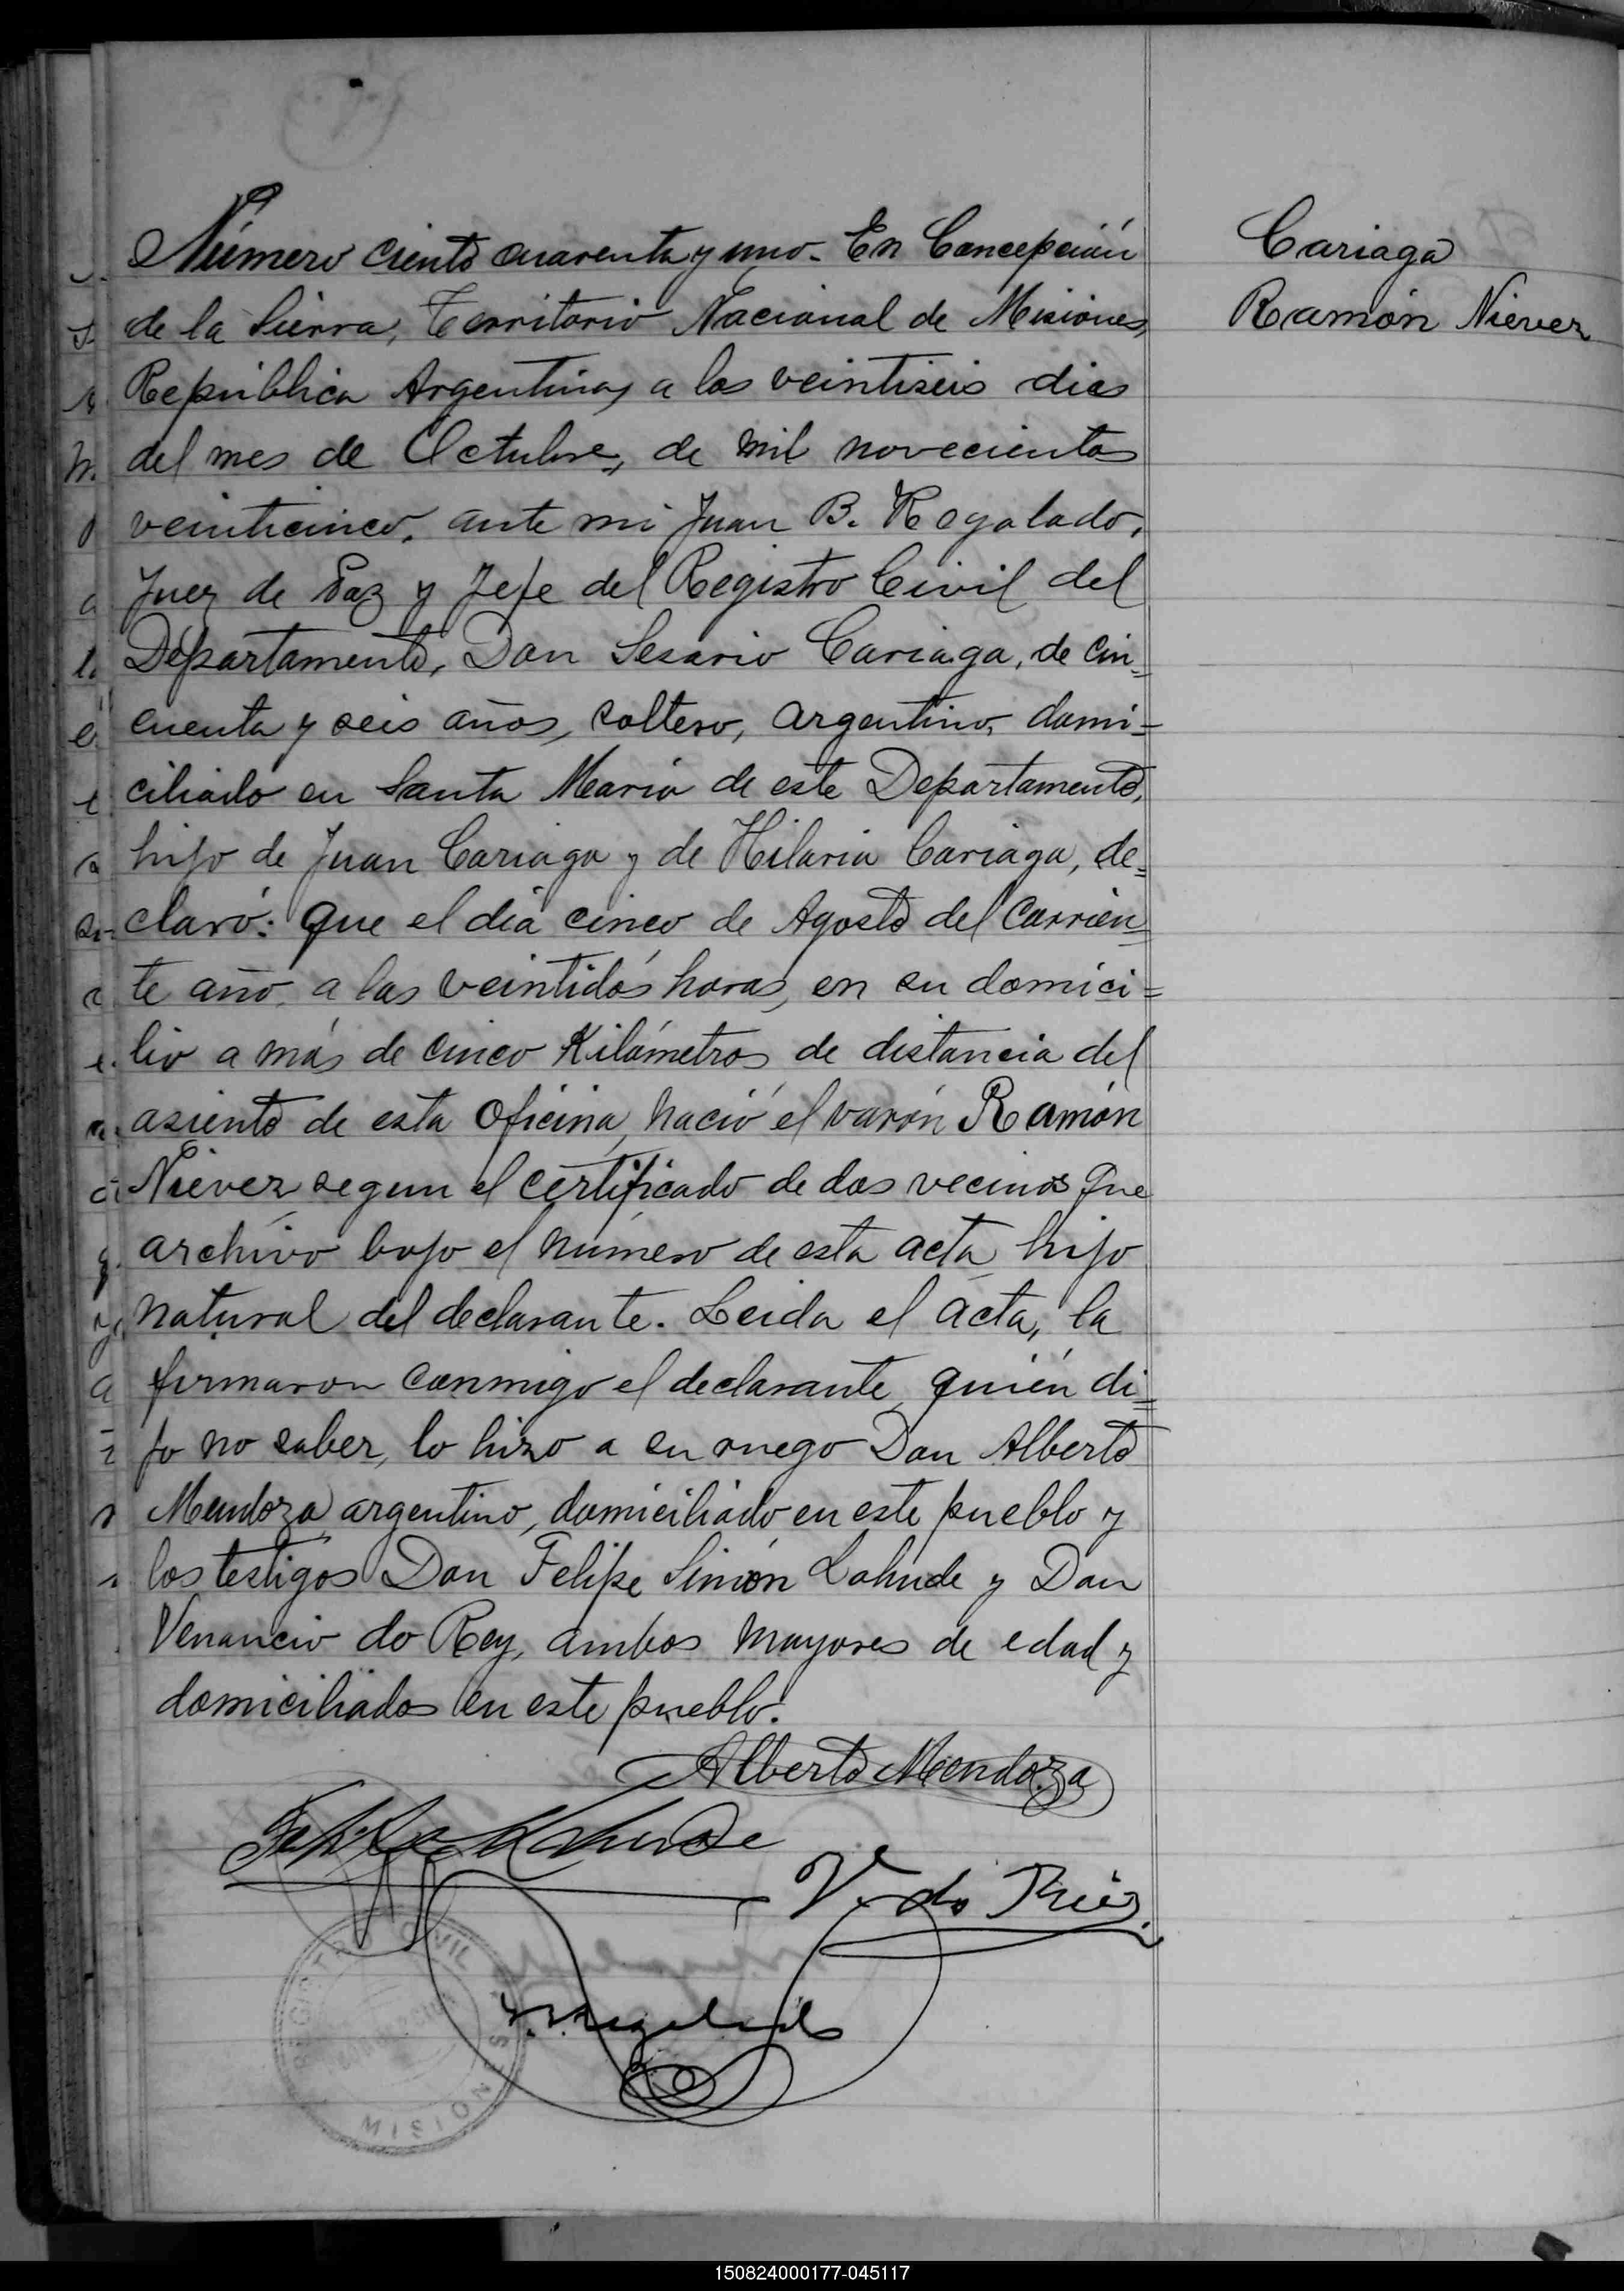 Cariaga
Ramón Niever
Número ciento cuarenta y uno. En Concepción
de la Sierra, Territorio Nacional de Misiones,
República Argentina, a los veintiseis dias
del mes de Octubre, de mil novecientos
veinticinco, ante mi Juan B. Regalado,
Juez de Paz y Jefe del Registro Civil del
Departamento, Don Sesario Cariaga, de cin=
cuenta y seis años, soltero, argentino, domi=
ciliado en Santa Maria de este Departamento,
hijo de Juan Cariaga y de Hilaria Cariaga, de=
claró: Que el día cinco de Agosto del corrien=
te año, a las veintidós horas, en su domici=
lio a más de cinco Kilómetros de distancia del
asiento de esta Oficina, nació el varón Ramón
Niever, segun el certificado de dos vecinos que
archivo bajo el número de esta acta, hijo
natural del declarante. Leida el acta, la
firmaron conmigo el declarante, quién di=
jo no saber, lo hizo a su ruego Don Alberto
Mendoza argentino, domiciliado en este pueblo y
los testigos Don Felipe Simón Lahude y Don
Venancio do Rey, ambos mayores de edad y
domiciliados en este pueblo.
Alberto Mendoza
Felipe Lahude
V. do Rey
J. B. Regalado
REGISTRO CIVIL
MISIONES
150824000177-045117